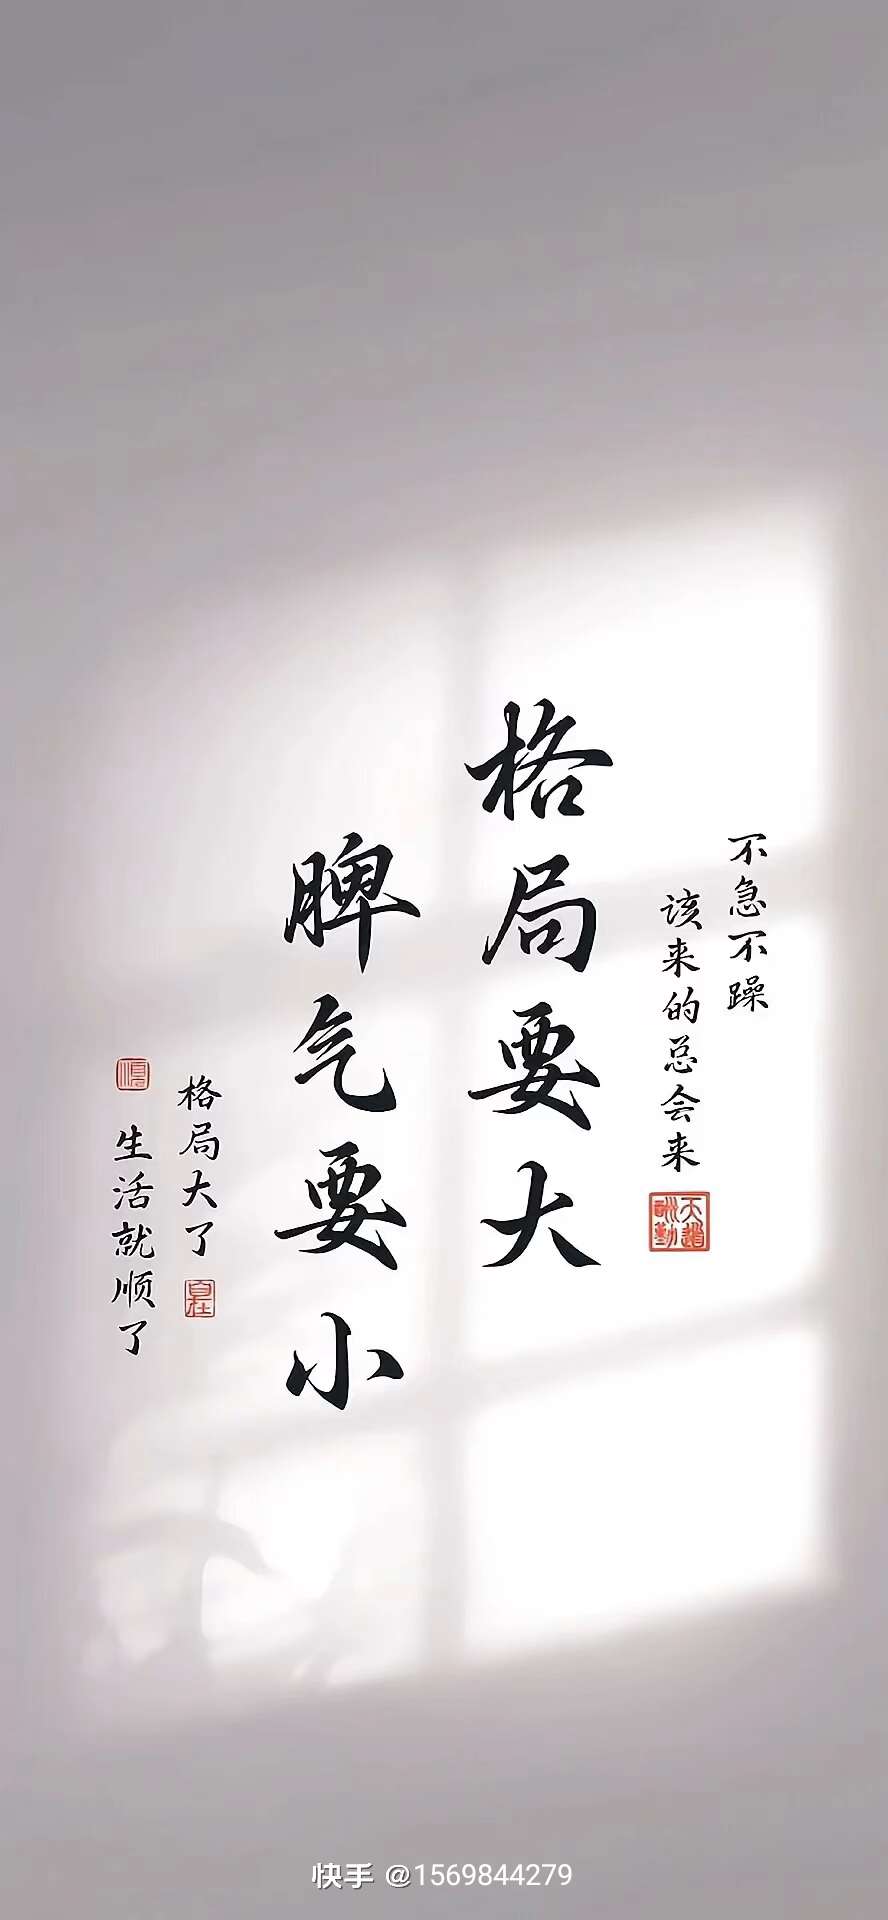 不急不躁
该来的总会来
天道酬勤
格局要大
脾气要小
格局大了
自在
生活就顺了
快手 @1569844279